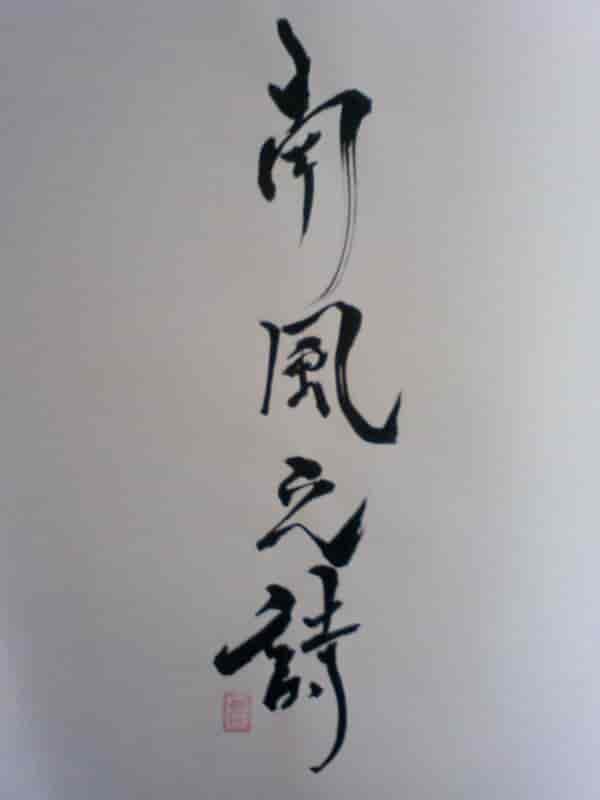 南風之詩